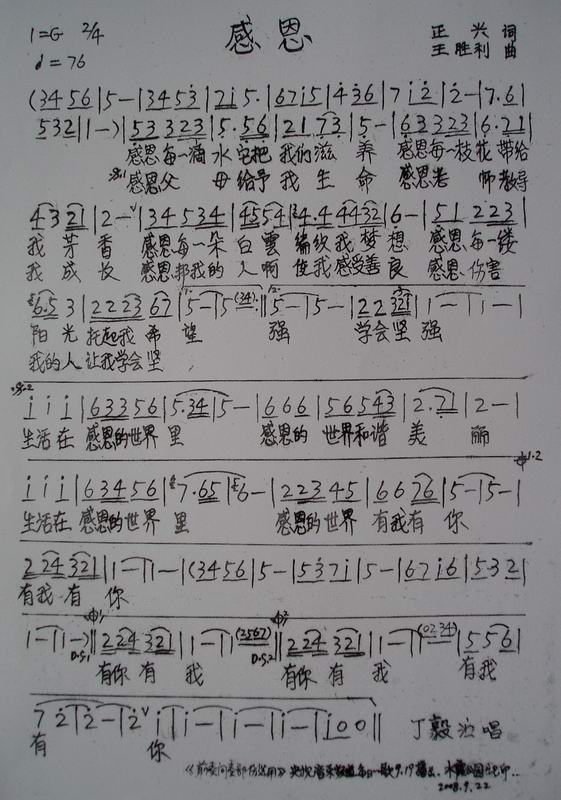 1=G 2/4
感恩
正兴 词
♩=76
王胜利 曲
(34 56|5-|34 53|2i 5·|67i5|4 36|7 i2|2-|7·6|
532|1-)|53 323|5·56|21 73|5-|63 323|6·21|
感恩每一滴 水 它把 我们滋 养 感恩每一枝花 带给
感恩父 母 给予 我 生 命 感恩老 师 教导
4 3 21|2-|34 534|4554|4·4 4432|6-|51 223|
我 芳 香 感恩每一朵 白 雲 编织我 梦 想 感恩每一缕
我 成 长 感恩那我的 人 啊 使我感受善 良 感恩伤害
6·5 3|22 23 67|5-|5 (34):‖5-|5-|22 321|1-|1-|
阳 光 托起我 希 望 强 学会坚 强
我的人 让我学会 坚
i i i|633 56|5·34|5-|666|56 543|2·71|2-|
生活在 感恩的世界 里 感恩的 世界和谐 美 丽
i i i|634 56|7·65|6-|223 45|66 76|5-|5-|
生活在 感恩的世界 里 感恩的世界 有我有 你
224 321|1-|1-|(34 56|5-|5 37i|5-|67 i6|5 32|
有我 有 你
1-|1-)‖224 321|1-|1 (3567)‖224 321|1-|1 (02 34)|5 56|
D.S.1 D.S.2
有你 有 我 有你 有 我 有我
7 2|2-|2 i|i-|i-|i-|i-|i 0 0‖
有 你
丁毅 演唱
2008.9.22